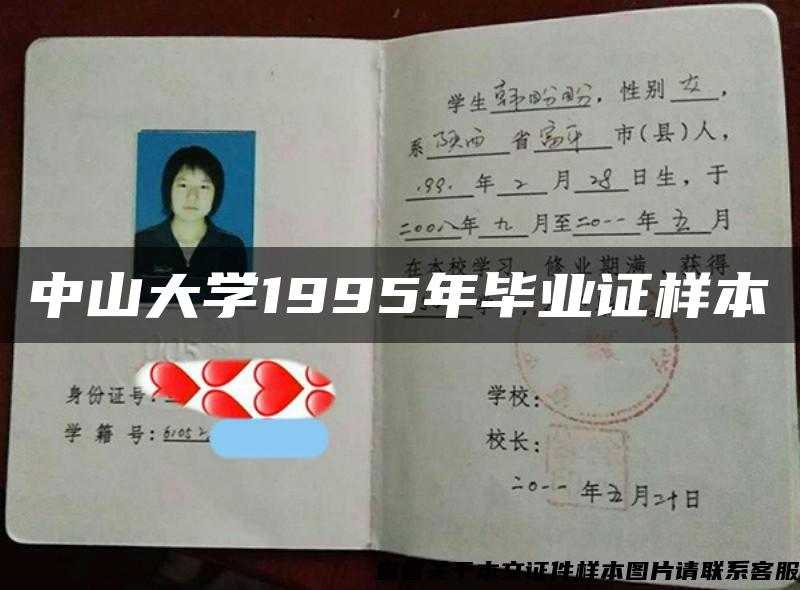 学生韩盼盼，性别女，
系陕西省富平市(县)人，
1991年2月28日生，于
二00八年九月至二0一一年五月
在本校学习，修业期满，获得
中山大学1995年毕业证样本
身份证号：
学籍号：6105 2
学校：
校长：
二0一一年五月二十日
查看关于本文证件样本图片请联系客服